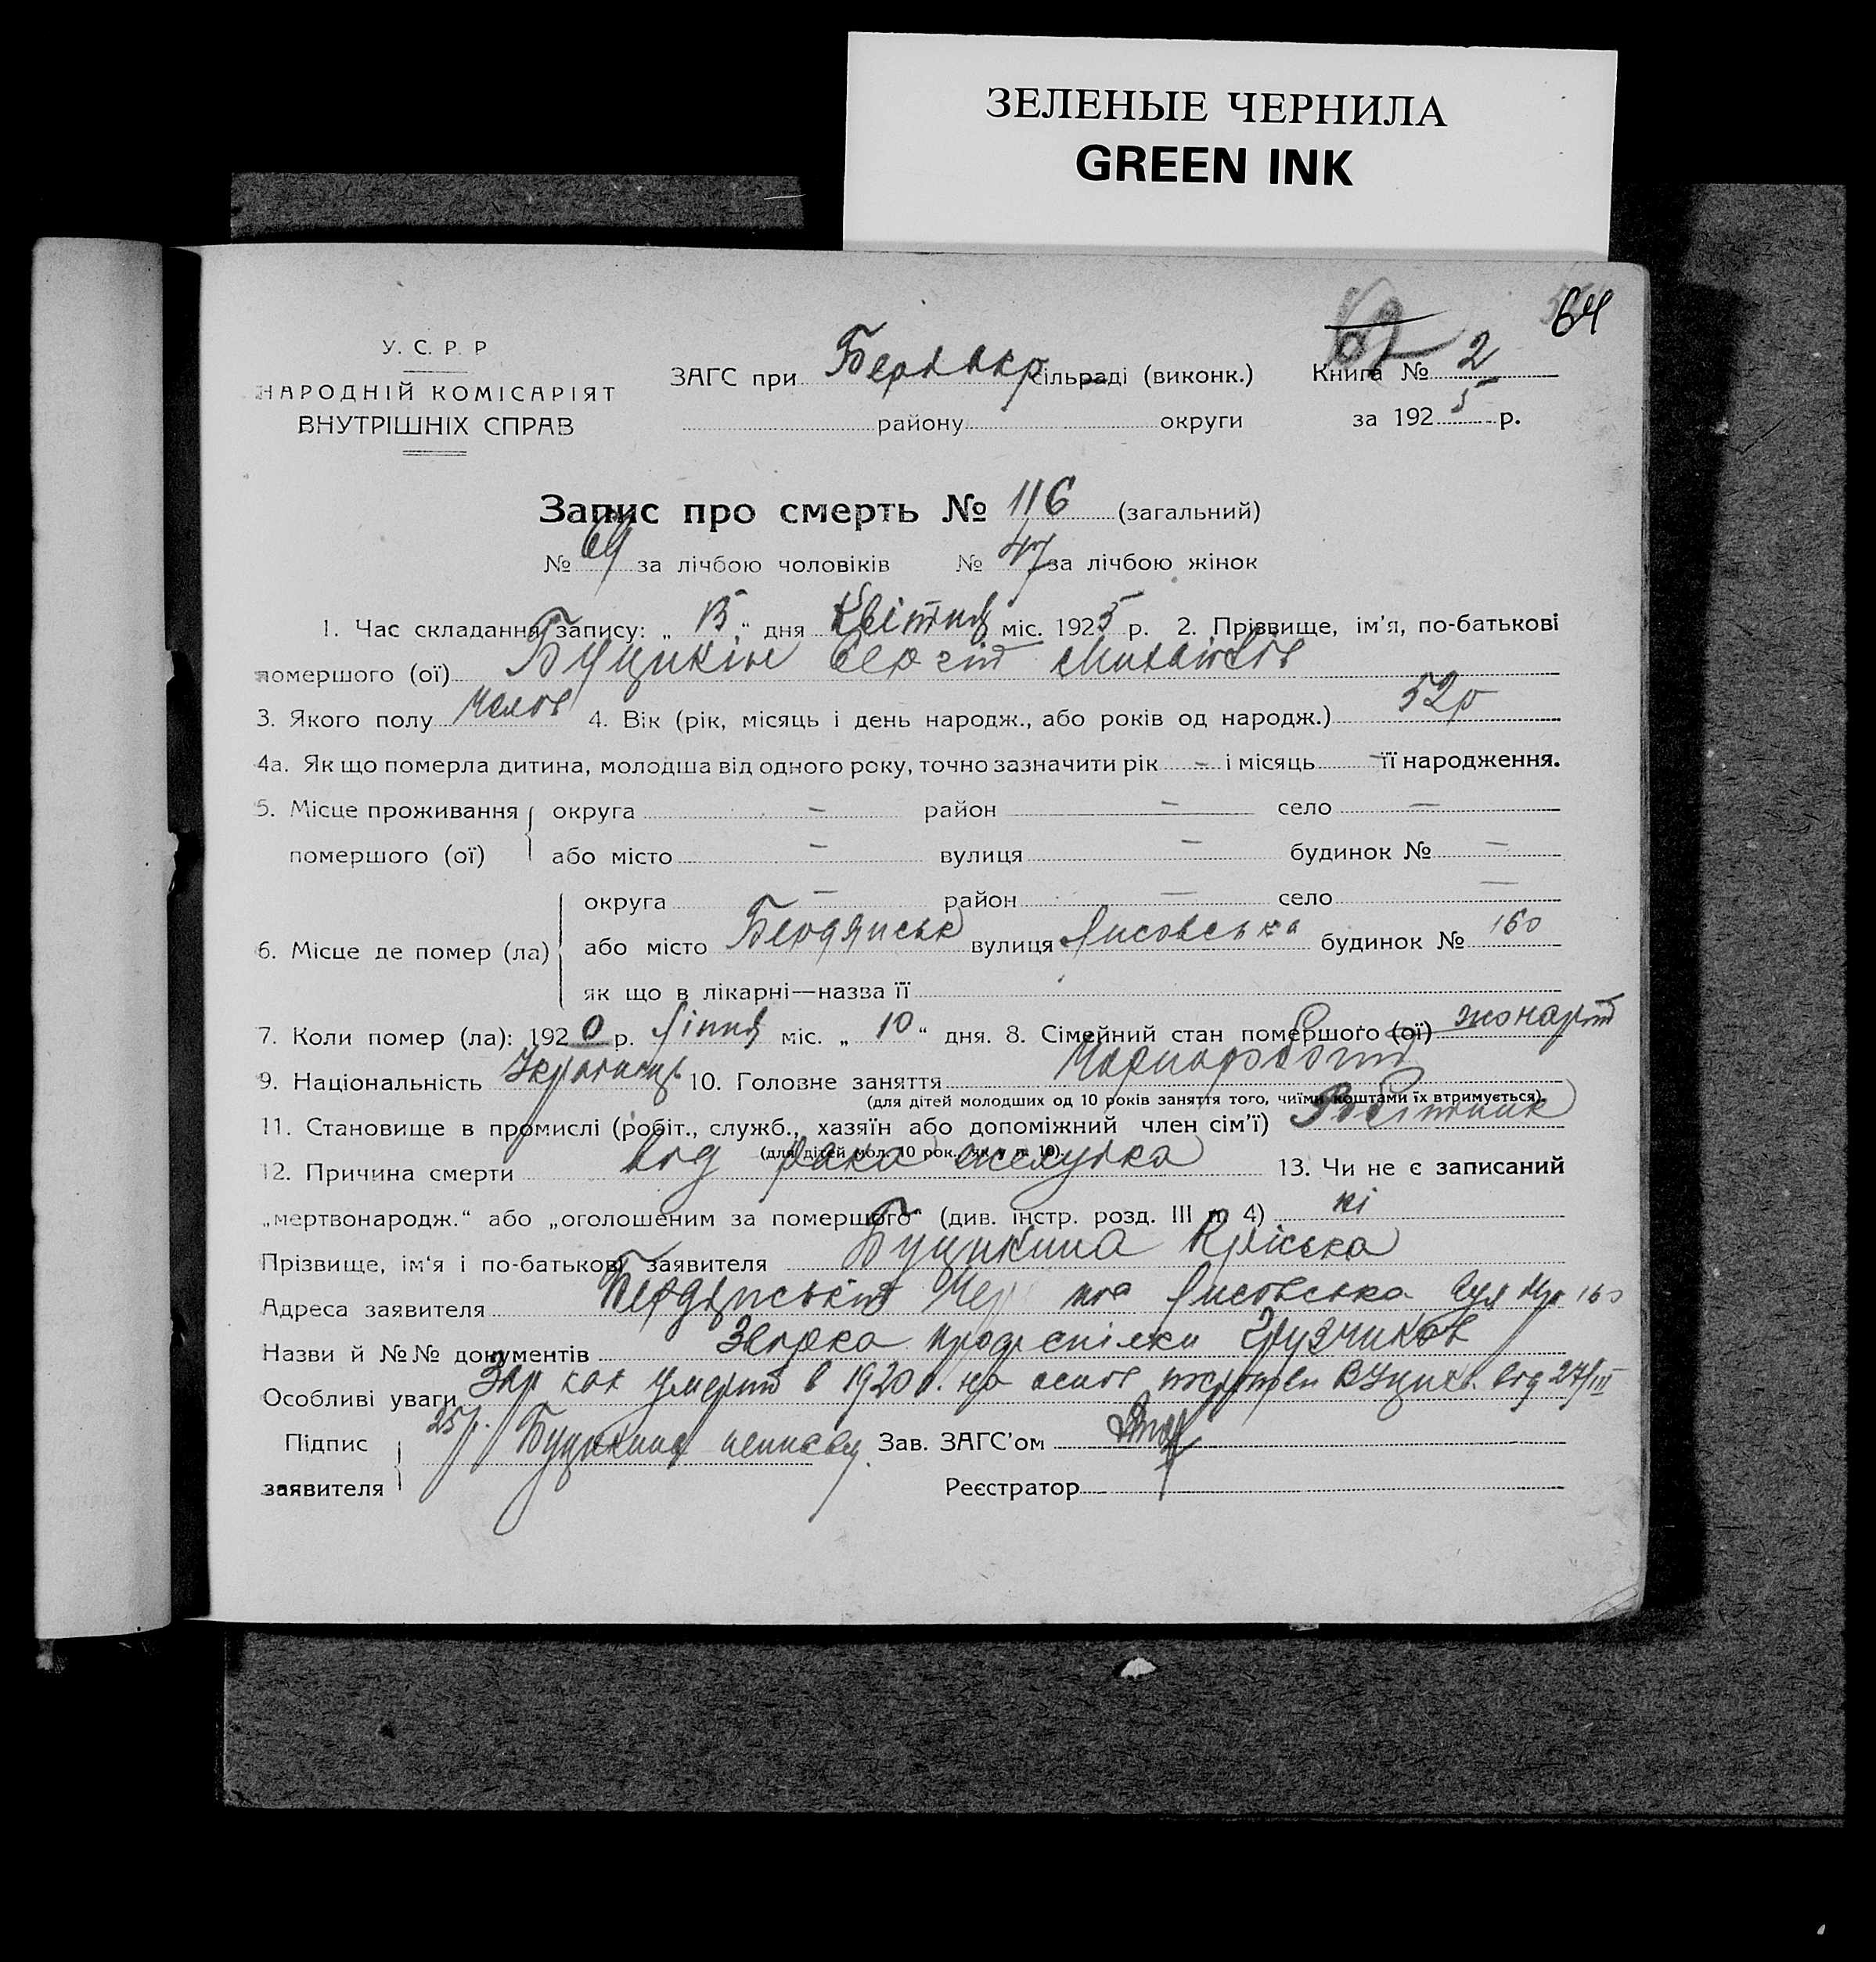 ЗЕЛЕНЫЕ ЧЕРНИЛА
GREEN INK
64
У. С. Р. Р
НАРОДНІЙ КОМІСАРІЯТ
ВНУТРІШНІХ СПРАВ
ЗАГС при сільраді (виконк.)
району округи
Книга № 2
за 1925 р.
Запис про смерть № 116 (загальний)
№ 69 за лічбою чоловіків № 47 за лічбою жінок
1. Час складання запису: „ 15 “ дня Квітня міс. 1925 р. 2. Прізвище, ім'я, по-батькові
помершого (ої) Буцикін Сергій Михайлів
3. Якого полу Чолов 4. Вік (рік, місяць і день народж., або років од народж.) 52р
4а. Як що померла дитина, молодша від одного року, точно зазначити рік – і місяць – її народження.
5. Місце проживання округа – район – село –
помершого (ої) або місто – вулиця – будинок № –
округа – район – село –
6. Місце де помер (ла) або місто Бердянськ вулиця Лисовська будинок № 160
як що в лікарні—назва її
7. Коли помер (ла): 1920 р. Ліпня міс. „ 10 “ дня. 8. Сімейний стан помершого (ої) жонатий
9. Національність Українець 10. Головне заняття Чорноробочий
(для дітей молодших од 10 років заняття того, чиїми коштами їх втримується).
11. Становище в промислі (робіт., служб., хазяїн або допоміжний член сім'ї) Робітник
(для дітей мол. 10 рок., як у п. 10).
12. Причина смерти від рака желудка 13. Чи не є записаний
„мертвонародж.“ або „оголошеним за помершого“ (див. інстр. розд. III п. 4) ні
Прізвище, ім'я і по-батькові заявителя Буцикина
Адреса заявителя Бердянській Лисовська вул 160
Назви й №№ документів профспілки Грузчиков
Особливі уваги как умерш в 1920 р. на від 27/III
25р.
Підпис Буцикина Зав. ЗАГС'ом
заявителя Реєстратор